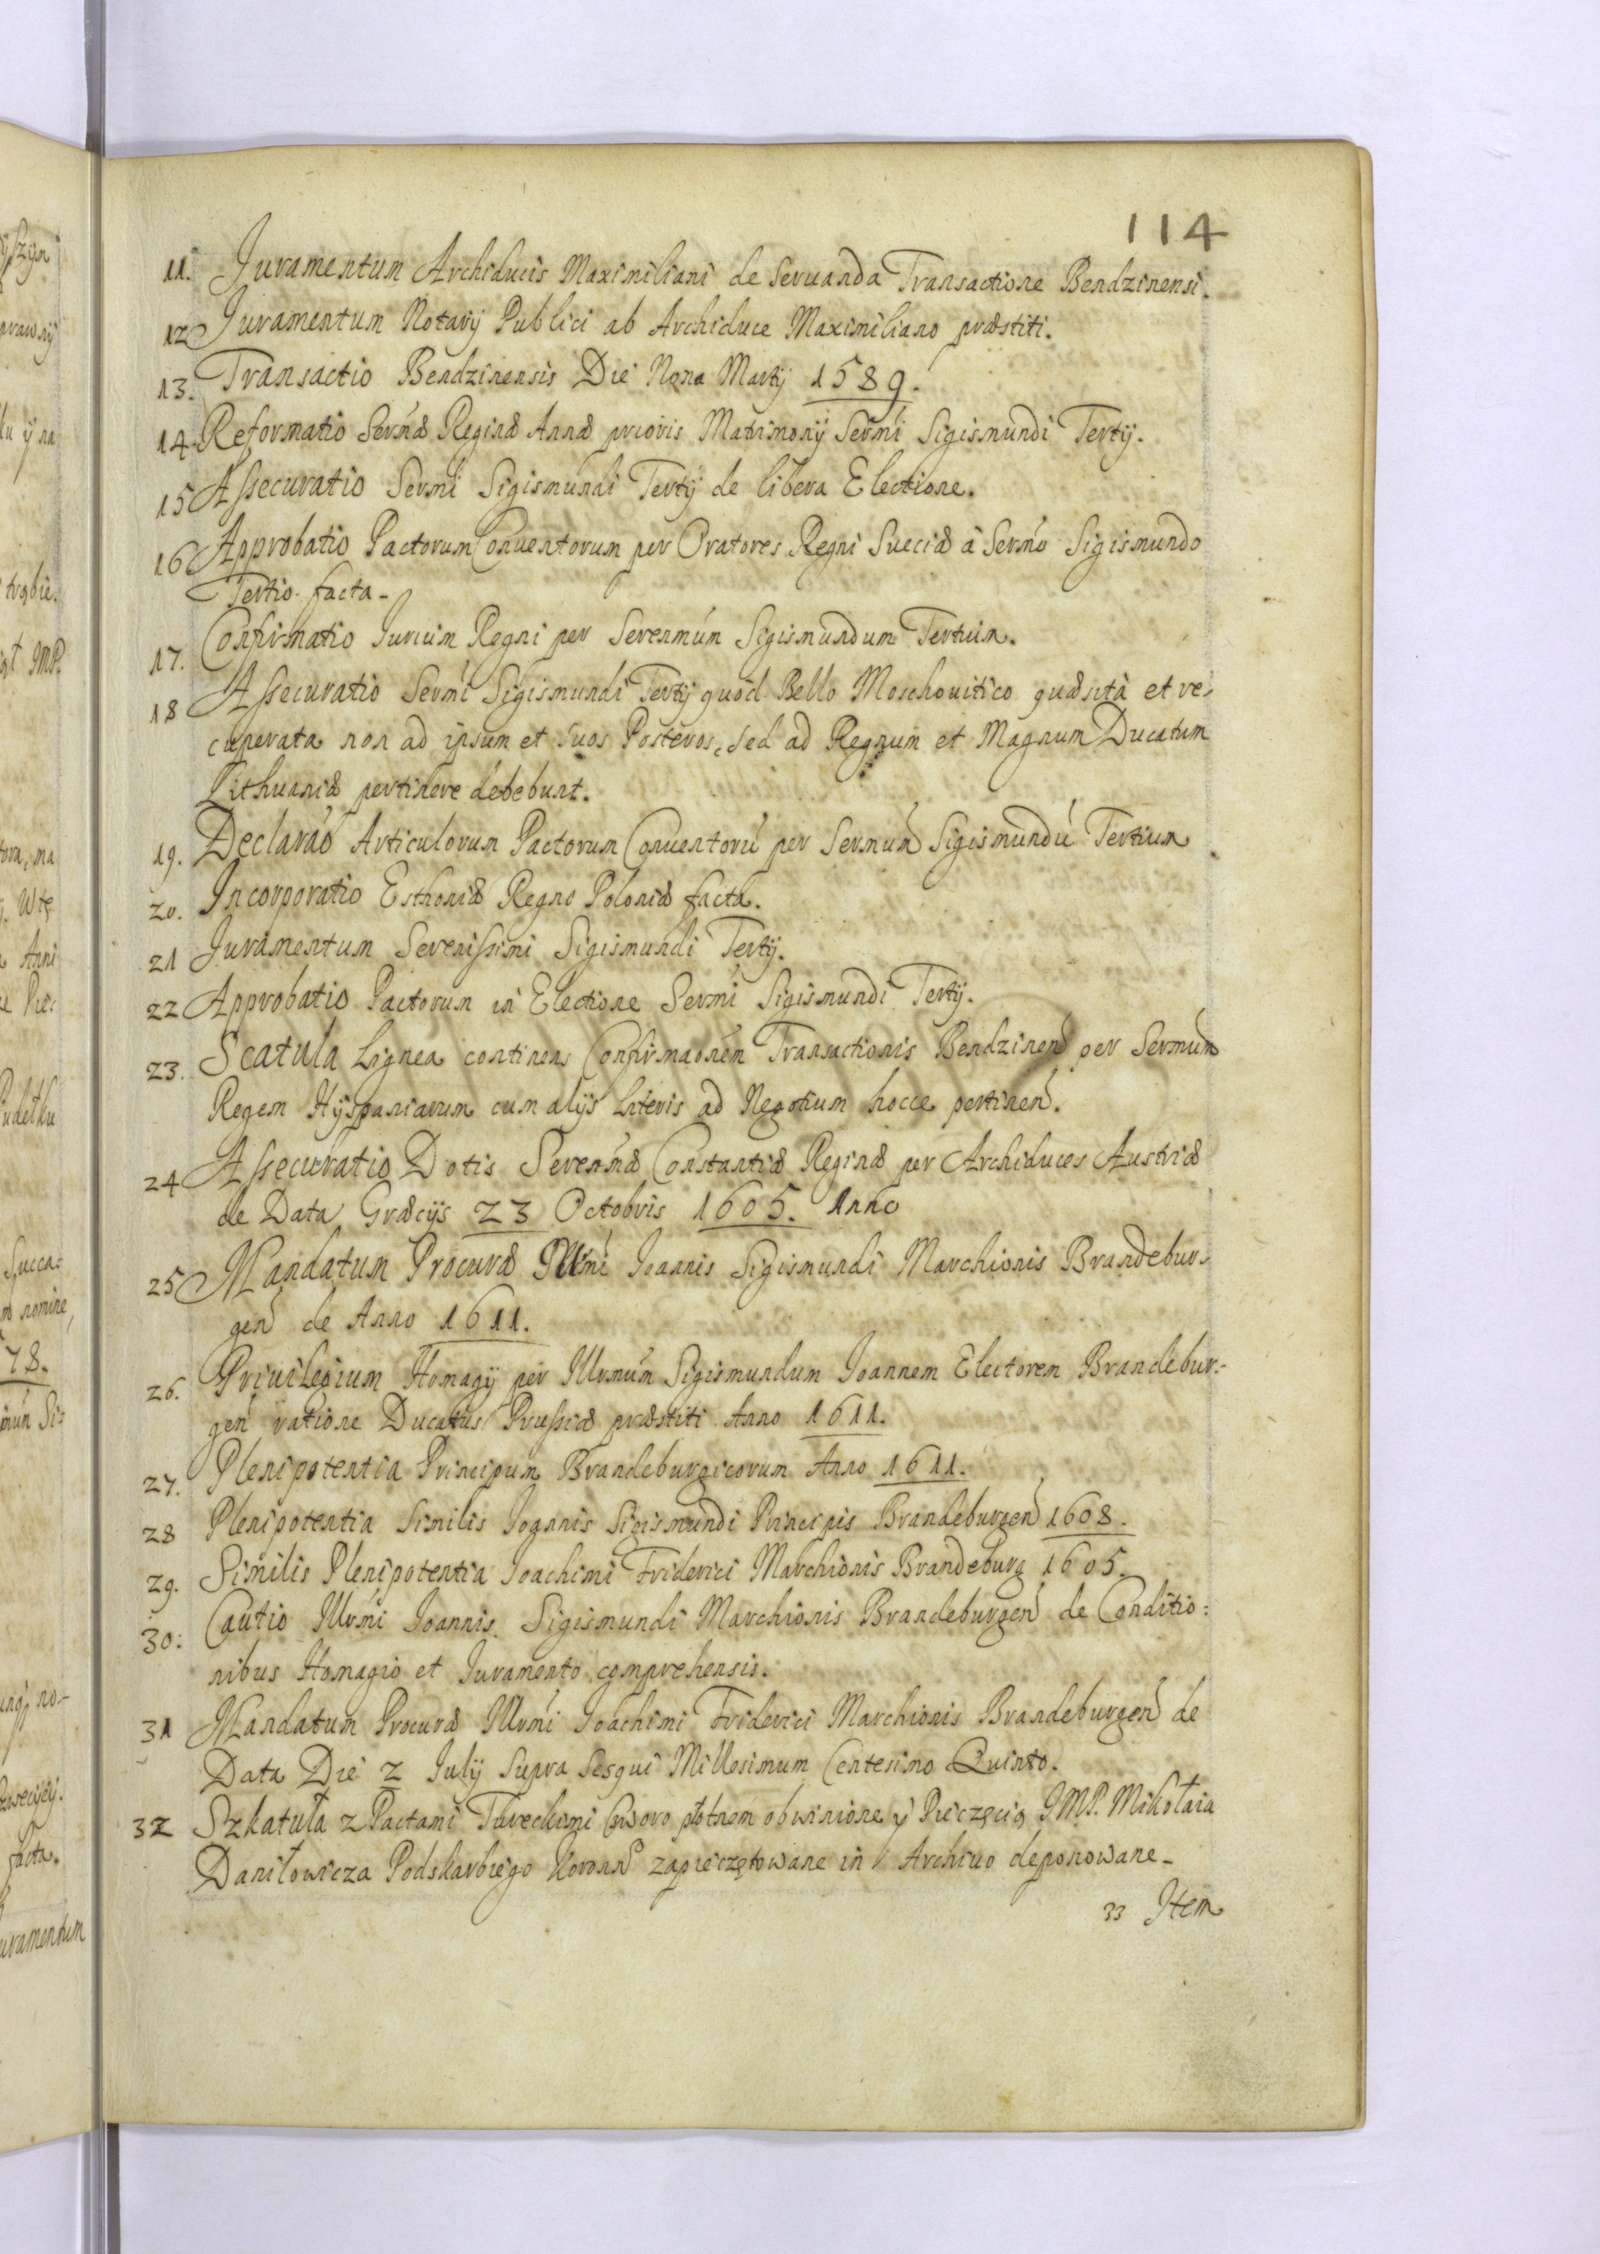 114
11. Juramentum Archiducis Maximiliani de Seruanda Transactione Bendzinensi.
12 Juramentum Notarÿ Publici ab Archiduce Maximiliano præstiti.
13. Transactio Bendzinensis Die Nona Martÿ 1589.
14 Reformatio Sermæ Reginæ Annæ prioris Matrimonÿ Sermi Sigismundi Tertÿ.
15 Assecuratio Sermi Sigismundi Tertÿ de libera Electione.
16 Approbatio Pactorum Conuentorum per Oratores Regni Sueciæ à Sermo Sigismundo
Tertio facta.
17. Confirmatio Jurium Regni per Serenmum Sigismundum Tertium.
18 Assecuratio Sermi Sigismundi Tertÿ quod Bello Moschouitico quæsita et re-
cuperata non ad ipsum et suos Posteros, sed ad Regnum et Magnum Ducatum
Lithuaniæ pertinere debebunt.
19. Declarao Articulorum Pactorum Conuentorú per Sermum Sigismundú Tertium
20. Incorporatio Esthoniæ Regno Poloniæ facta.
21 Juramentum Serenissimi Sigismundi Tertÿ.
22 Approbatio Pactorum in Electione Sermi Sigismundi Tertÿ.
23. Scatula Lignea continens Confirmaonem Transactionis Bendzinen per Sermum
Regem Hÿspaniarum cum alÿs Literis ad Negotium hocce pertinen.
24 Assecuratio Dotis Serenmæ Constantiæ Reginæ per Archiduces Austriæ
de Data Græcÿs 23 Octobris 1605. Anno
25 Mandatum Procuræ Illmi Joannis Sigismundi Marchionis Brandebur-
gen de Anno 1611.
26. Priuilegium Homagÿ per Illrmum Sigismundum Joannem Electorem Brandebur-
gen ratione Ducatus Prussiæ præstiti Anno 1611.
27. Plenipotentia Principum Brandeburgicorum Anno 1611.
28 Plenipotentia Similis Joannis Sigismundi Principis Brandeburgen 1608.
29. Similis Plenipotentia Joachimi Friderici Marchionis Brandeburg 1605.
30: Cautio Illrmi Joannis Sigismundi Marchionis Brandeburgen de Conditio:
nibus Homagio et Juramento comprehensis.
31 Mandatum Procuræ Illrmi Joachimi Friderici Marchionis Brandeburgen de
Data Die 2 Julÿ Supra Sesqui Millesimum Centesimo Quinto.
32 Szkatuła z Pactami Tureckimi płotnem obwinione ÿ Pieczęcią JMP. Mikołaia
Daniłowicza Podskarbiego Koronn zapieczętowane in Archiuo deponowane-
33 Item